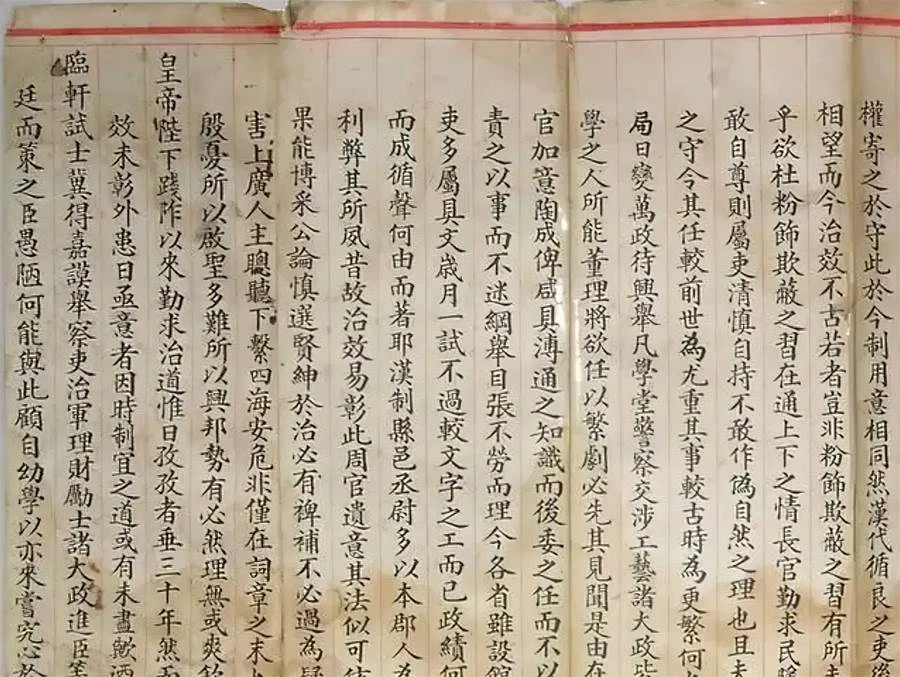 權寄之於守此於今制用意相同然漢代循良之吏後
相望而今治效不古若者豈非粉飾欺蔽之習有所未
乎欲杜粉飾欺蔽之習在通上下之情長官勤求民隱
敢自尊則屬吏清慎自持不敢作偽自然之理也且夫
之守令其任較前世為尤重其事較古時為更繁何
局日變萬政待興舉凡學堂警察交涉工藝諸大政皆
學之人所能董理將欲任以繁劇必先其見聞是由在
官加意陶成俾咸具溥通之知識而後委之任而不以
責之以事而不迷綱舉目張不勞而理今各省雖設館
吏多屬具文歲月一試不過較文字之工而已政績何
而成循聲何由而著耶漢制縣邑丞尉多以本郡人為
利弊其所夙昔故治效易彰此周官遺意其法似可
果能博采公論慎選賢紳於治必有裨補不必過為疑
害上廣人主聰聽下繫四海安危非僅在詞章之末
殷憂所以啟聖多難所以興邦勢有必然理無或爽欽
皇帝陛下踐阼以來勤求治道惟日孜孜者垂三十年然而
效未彰外患日亟意者因時制宜之道或有未盡歟
臨軒試士冀得嘉謨舉察吏治軍理財勵士諸大政進臣等
廷而策之臣愚陋何能與此顧自幼學以亦來嘗究心於